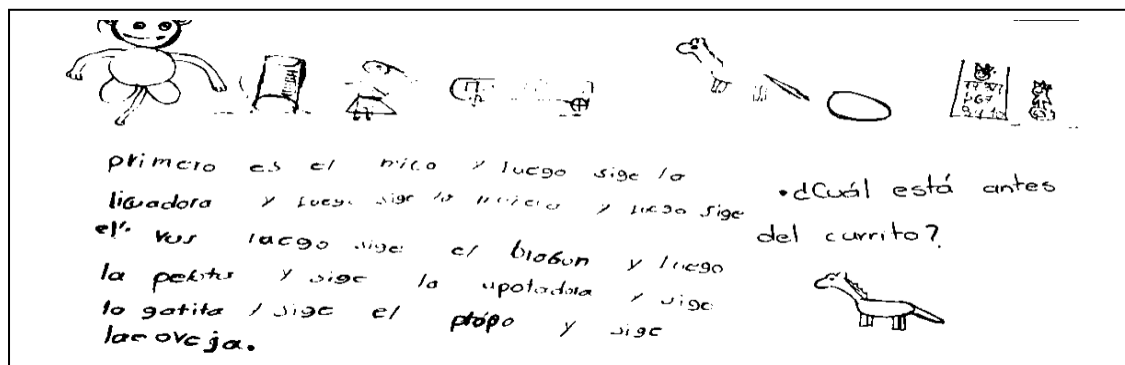 primero es el mico y luego sige la
licuadora y luego sige la muñeca y luego sige
el vus luego sige el
la y sige la y sige
la gatita y sige el y sige
la oveja.
•¿Cuál está antes
del currito?